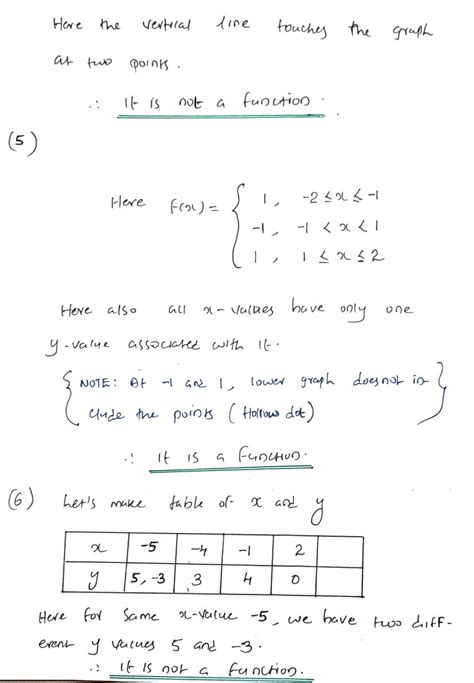 Here the vertical line touches the graph
at two points.
∴ It is not a function.
(5)
Here f(x) = { 1, -2 ≤ x ≤ -1
-1, -1 < x < 1
1, 1 ≤ x ≤ 2
Here also all x-values have only one
y-value associated with it.
{ NOTE: At -1 and 1, lower graph does not in
clude the points (Hollow dot) }
∴ It is a function.
(6) Let's make table of x and y
x -5 -4 -1 2
y 5, -3 3 4 0
Here for same x-value -5, we have two diff-
erent y values 5 and -3.
∴ It is not a function.